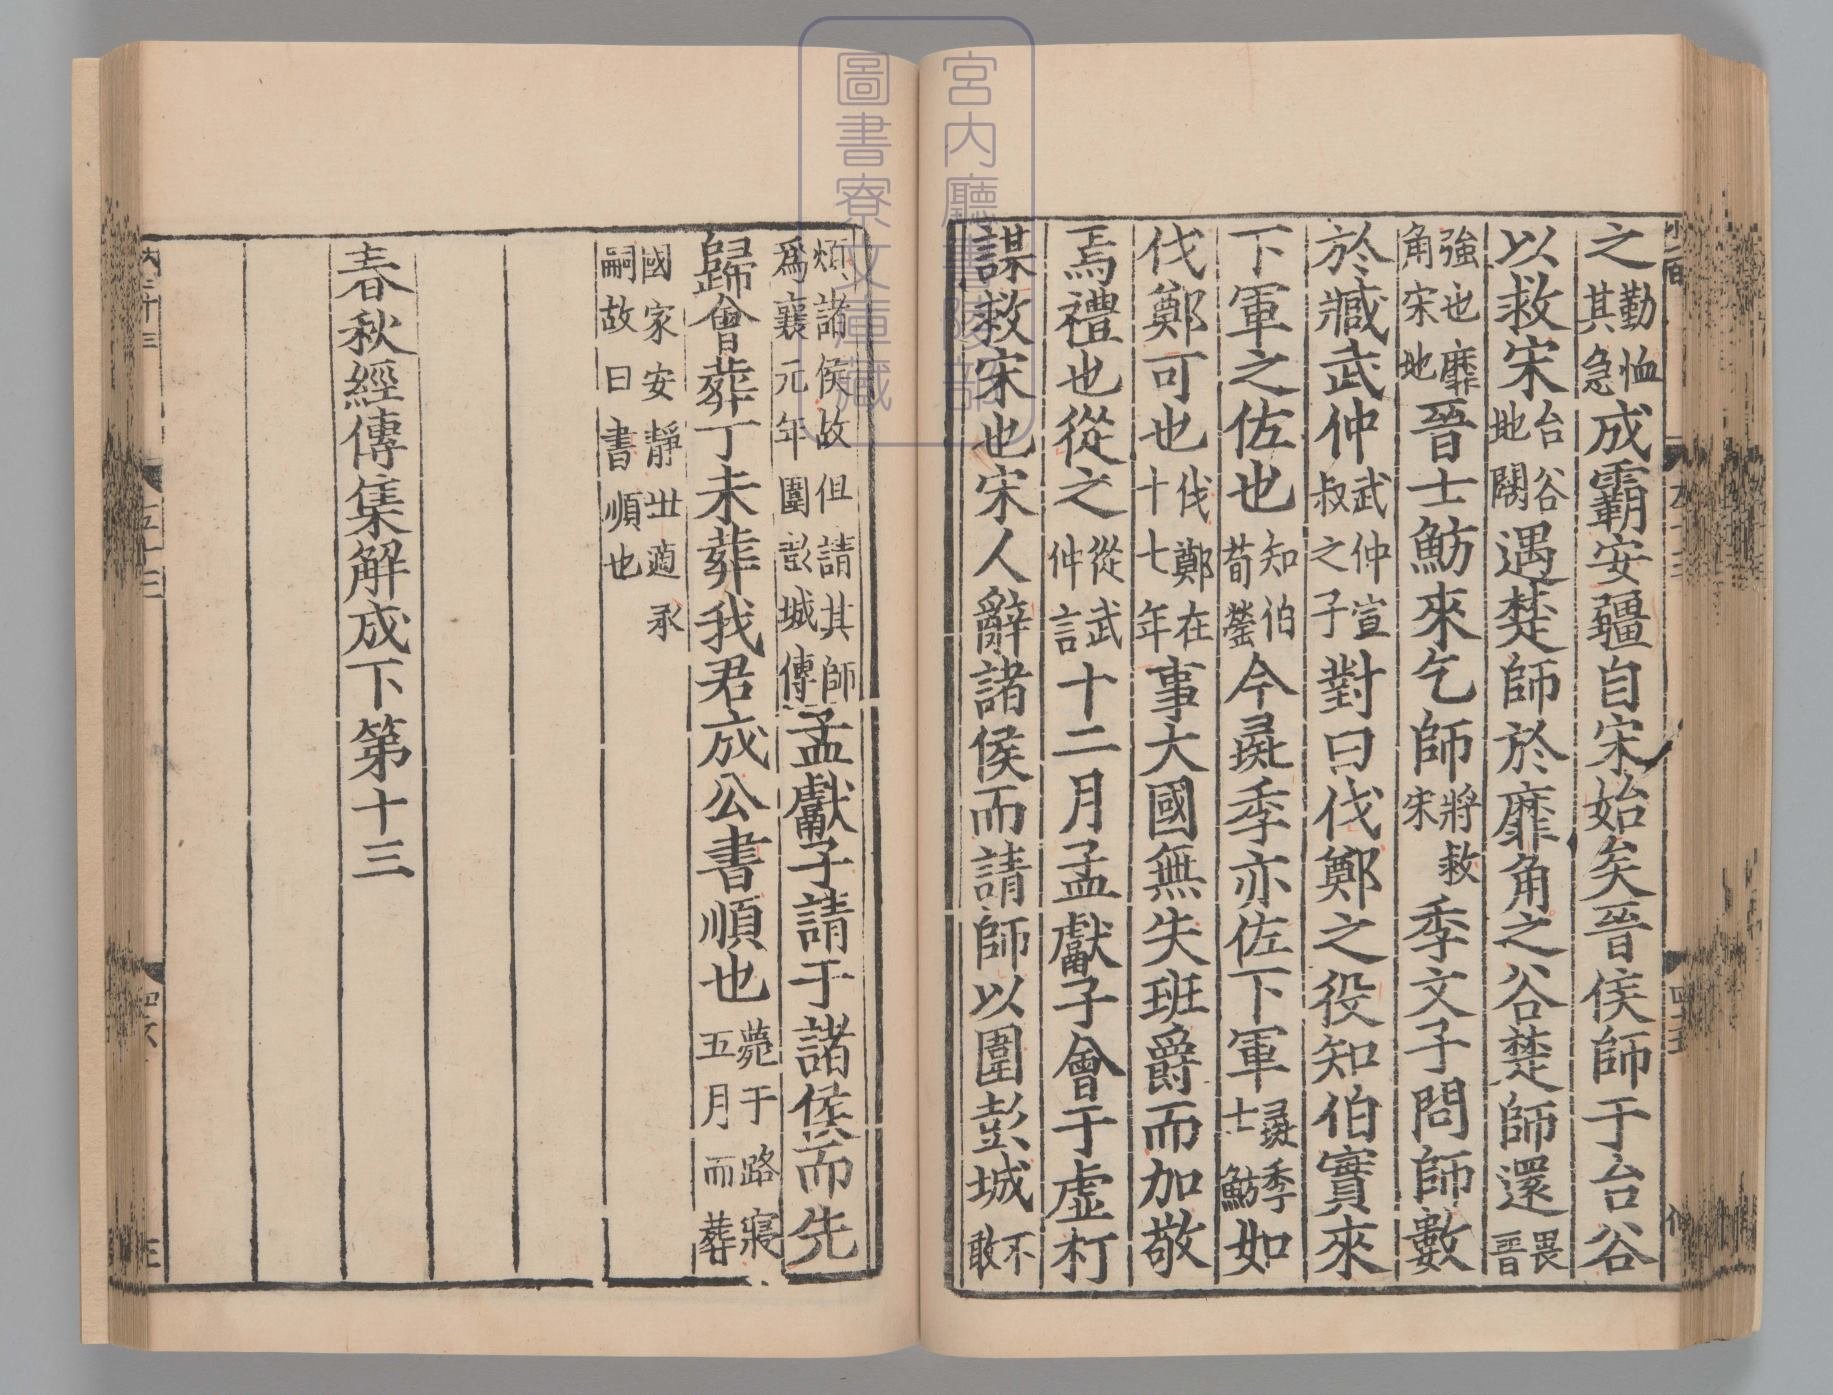 之勤恤其急成霸安疆自宋始矣晉侯師于台谷
以救宋台谷地闕遇楚師於靡角之谷楚師還畏晉
強也靡角宋地晉士魴來乞師將救宋季文子問師數
於臧武仲武仲宣叔之子對曰伐鄭之役知伯實來
下軍之佐也知伯荀罃今彘季亦佐下軍彘季士魴如
伐鄭可也伐鄭在十七年事大國無失班爵而加敬
焉禮也從之從武仲言十二月孟獻子會于虛朾
謀救宋也宋人辭諸侯而請師以圍彭城不敢
煩諸侯故但請其師爲襄元年圍彭城傳孟獻子請于諸侯而先
歸會葬丁未葬我君成公書順也薨于路寢五月而葬
國家安靜世適承嗣故曰書順也
春秋經傳集解成下第十三
宮内廳書陵部
圖書寮文庫藏